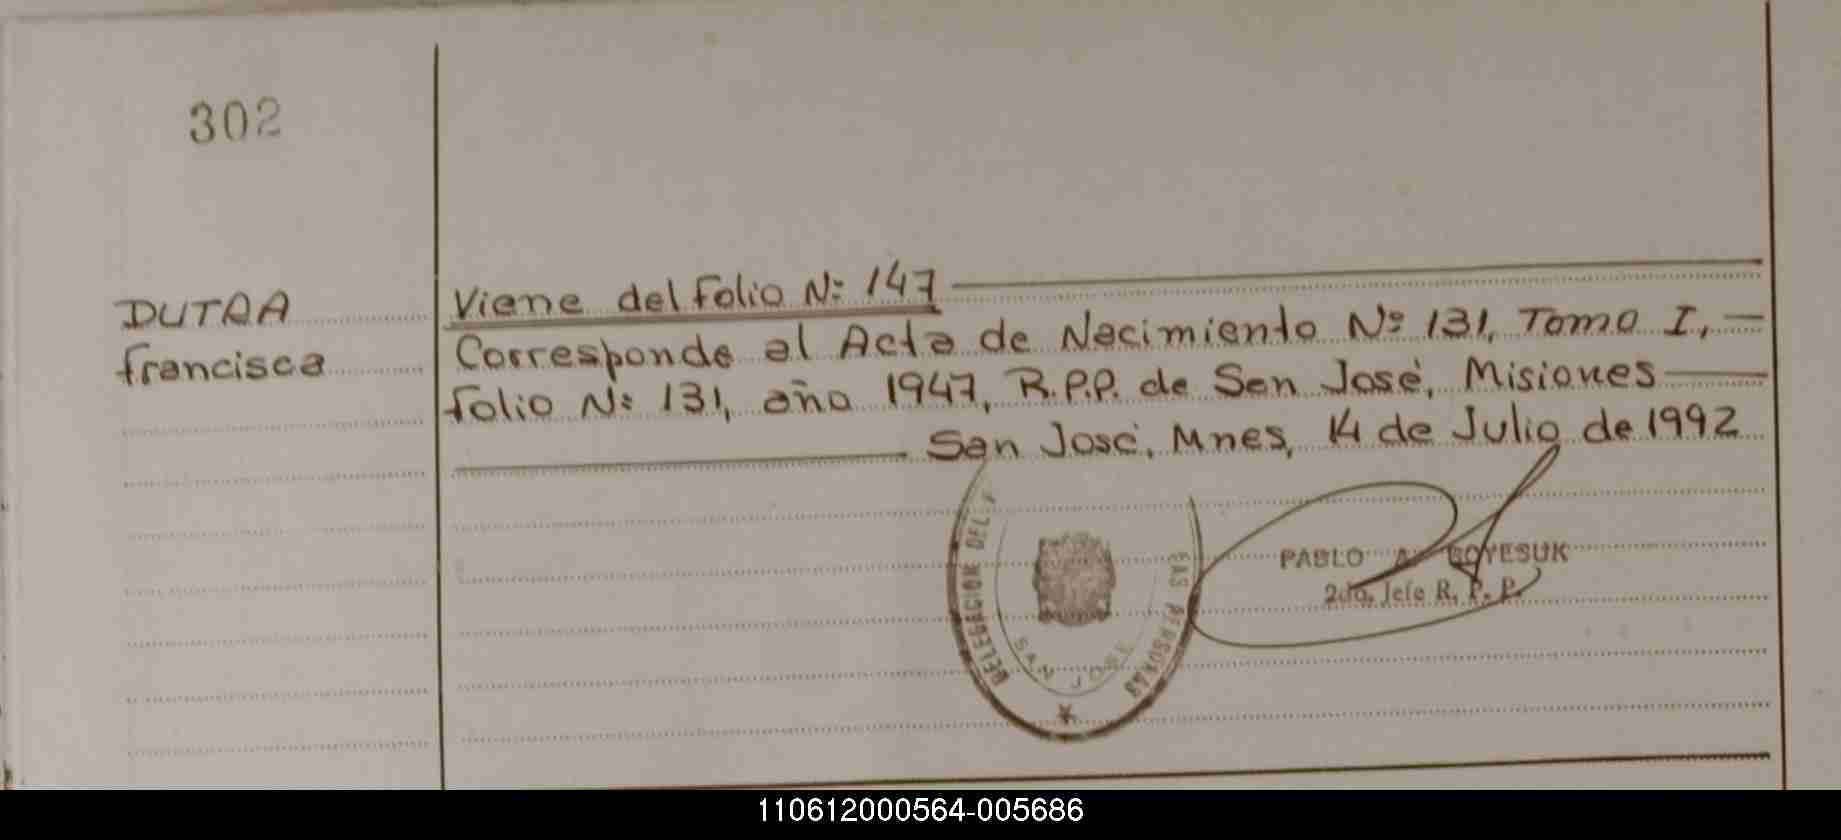 302
DUTRA
francisca
Viene del folio Nº 147
Corresponde al Acta de Nacimiento Nº 131, Tomo I, —
folio Nº 131, año 1947, R.P.P. de San José, Misiones
San José, Mnes, 14 de Julio de 1992
DELEGACION DEL
EAS PERSONAS
SAN JOSE
PABLO A. BOYESUK
2do. Jefe R. P. P.
110612000564-005686